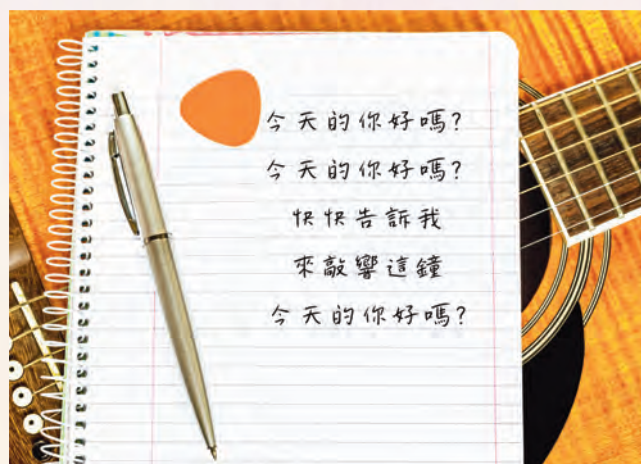 今天的你好嗎?
今天的你好嗎?
快快告訴我
來敲響這鐘
今天的你好嗎?